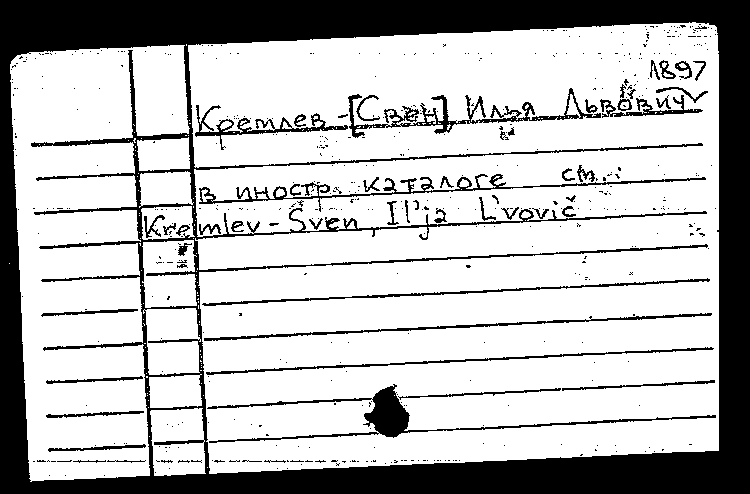 1897
Кремлев-[Свен], Илья Львович
в иностр. каталоге см.:
Kremlev-Sven, Il'ja L'vovič